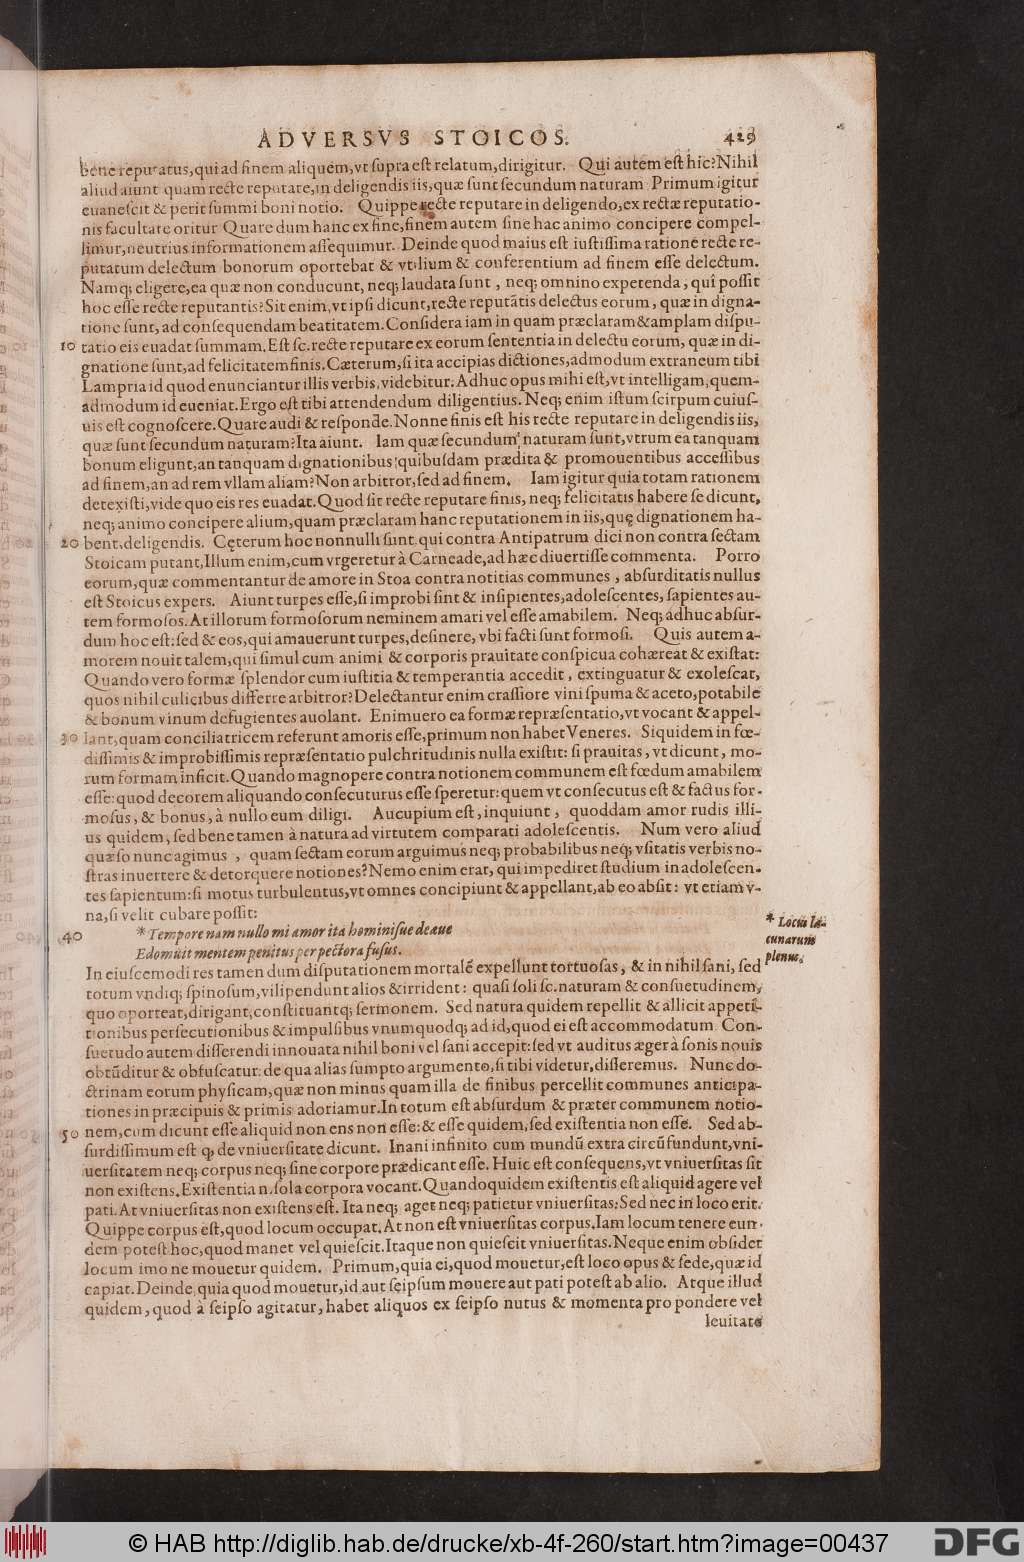 ADVERSVS STOICOS. 429
bene reputatus, qui ad finem aliquem, vt supra est relatum, dirigitur. Qui autem est hic? Nihil
aliud aiunt quam recte reputare, in deligendis iis, quæ sunt secundum naturam Primum igitur
euanescit & perit summi boni notio. Quippe recte reputare in deligendo, ex rectæ reputatio-
nis facultate oritur Quare dum hanc ex fine, finem autem sine hac animo concipere compel-
limur, neutrius informationem assequimur. Deinde quod maius est iustissima ratione recte re-
putatum delectum bonorum oportebat & vtilium & conferentium ad finem esse delectum.
Namq; eligere, ea quæ non conducunt, neq; laudata sunt, neq; omnino expetenda, qui possit
hoc esse recte reputantis? Sit enim, vt ipsi dicunt, recte reputātis delectus eorum, quæ in digna-
tione sunt, ad consequendam beatitatem. Considera iam in quam præclaram & amplam dispu-
10 tatio eis euadat summam. Est sc. recte reputare ex eorum sententia in delectu eorum, quæ in di-
gnatione sunt, ad felicitatem finis. Cæterum, si ita accipias dictiones, admodum extraneum tibi
Lampria id quod enunciantur illis verbis, videbitur. Adhuc opus mihi est, vt intelligam, quem-
admodum id eueniat. Ergo est tibi attendendum diligentius. Neq; enim istum scirpum cuius-
uis est cognoscere. Quare audi & responde. Nonne finis est his recte reputare in deligendis iis,
quæ sunt secundum naturam? Ita aiunt. Iam quæ secundum naturam sunt, vtrum ea tanquam
bonum eligunt, an tanquam dignationibus quibusdam prædita & promouentibus accessibus
ad finem, an ad rem vllam aliam? Non arbitror, sed ad finem. Iam igitur quia totam rationem
detexisti, vide quo eis res euadat. Quod sit recte reputare finis, neq; felicitatis habere se dicunt,
neq; animo concipere alium, quam præclaram hanc reputationem in iis, quę dignationem ha-
20 bent, deligendis. Cęterum hoc nonnulli sunt qui contra Antipatrum dici non contra sectam
Stoicam putant, Illum enim, cum vrgeretur à Carneade, ad hæc diuertisse commenta. Porro
eorum, quæ commentantur de amore in Stoa contra notitias communes, absurditatis nullus
est Stoicus expers. Aiunt turpes esse, si improbi sint & insipientes, adolescentes, sapientes au-
tem formosos. At illorum formosorum neminem amari vel esse amabilem. Neq; adhuc absur-
dum hoc est: sed & eos, qui amauerunt turpes, desinere, vbi facti sunt formosi. Quis autem a-
morem nouit talem, qui simul cum animi & corporis prauitate conspicua cohæreat & existat:
Quando vero formæ splendor cum iustitia & temperantia accedit, extinguatur & exolescat,
quos nihil culicibus differre arbitror? Delectantur enim crassiore vini spuma & aceto, potabile
& bonum vinum defugientes auolant. Enimuero ea formæ repræsentatio, vt vocant & appel-
30 lant, quam conciliatricem referunt amoris esse, primum non habet Veneres. Siquidem in fœ-
dissimis & improbissimis repræsentatio pulchritudinis nulla existit: si prauitas, vt dicunt, mo-
rum formam inficit. Quando magnopere contra notionem communem est fœdum amabilem
esse: quod decorem aliquando consecuturus esse speretur: quem vt consecutus est & factus for-
mosus, & bonus, à nullo eum diligi. Aucupium est, inquiunt, quoddam amor rudis illi-
us quidem, sed bene tamen à natura ad virtutem comparati adolescentis. Num vero aliud
quæso nunc agimus, quam sectam eorum arguimus neq; probabilibus neq; vsitatis verbis no-
stras inuertere & detorquere notiones? Nemo enim erat, qui impediret studium in adolescen-
tes sapientum: si motus turbulentus, vt omnes concipiunt & appellant, ab eo absit: vt etiam v-
na, si velit cubare possit:
40 * Tempore nam nullo mi amor ita hominisue deaue
Edomuit mentem penitus per pectora fusus.
* Locus la-
cunarum
plenus.
In eiuscemodi res tamen dum disputationem mortalē expellunt tortuosas, & in nihil sani, sed
totum vndiq; spinosum, vilipendunt alios & irrident: quasi soli sc. naturam & consuetudinem,
quo oporteat, dirigant, constituantq; sermonem. Sed natura quidem repellit & allicit appeti-
tionibus persecutionibus & impulsibus vnumquodq; ad id, quod ei est accommodatum Con-
suetudo autem disserendi innouata nihil boni vel sani accepit: sed vt auditus æger à sonis nouis
obtūditur & obfuscatur: de qua alias sumpto argumento, si tibi videtur, disseremus. Nunc do-
ctrinam eorum physicam, quæ non minus quam illa de finibus percellit communes anticipa-
tiones in præcipuis & primis adoriamur. In totum est absurdum & præter communem notio-
50 nem, cum dicunt esse aliquid non ens non esse: & esse quidem, sed existentia non esse. Sed ab-
surdissimum est q; de vniuersitate dicunt. Inani infinito cum mundū extra circūfundunt, vni-
uersitatem neq; corpus neq; sine corpore prædicant esse. Huic est consequens, vt vniuersitas sit
non existens. Existentia n. sola corpora vocant. Quandoquidem existentis est aliquid agere vel
pati. At vniuersitas non existens est. Ita neq; aget neq; patietur vniuersitas: Sed nec in loco erit.
Quippe corpus est, quod locum occupat. At non est vniuersitas corpus. Iam locum tenere eun-
dem potest hoc, quod manet vel quiescit. Itaque non quiescit vniuersitas. Neque enim obsidet
locum imo ne mouetur quidem. Primum, quia ei, quod mouetur, est loco opus & sede, quæ id
capiat. Deinde quia quod mouetur, id aut seipsum mouere aut pati potest ab alio. Atque illud
quidem, quod à seipso agitatur, habet aliquos ex seipso nutus & momenta pro pondere vel
leuitate
© HAB http://diglib.hab.de/drucke/xb-4f-260/start.htm?image=00437
DFG